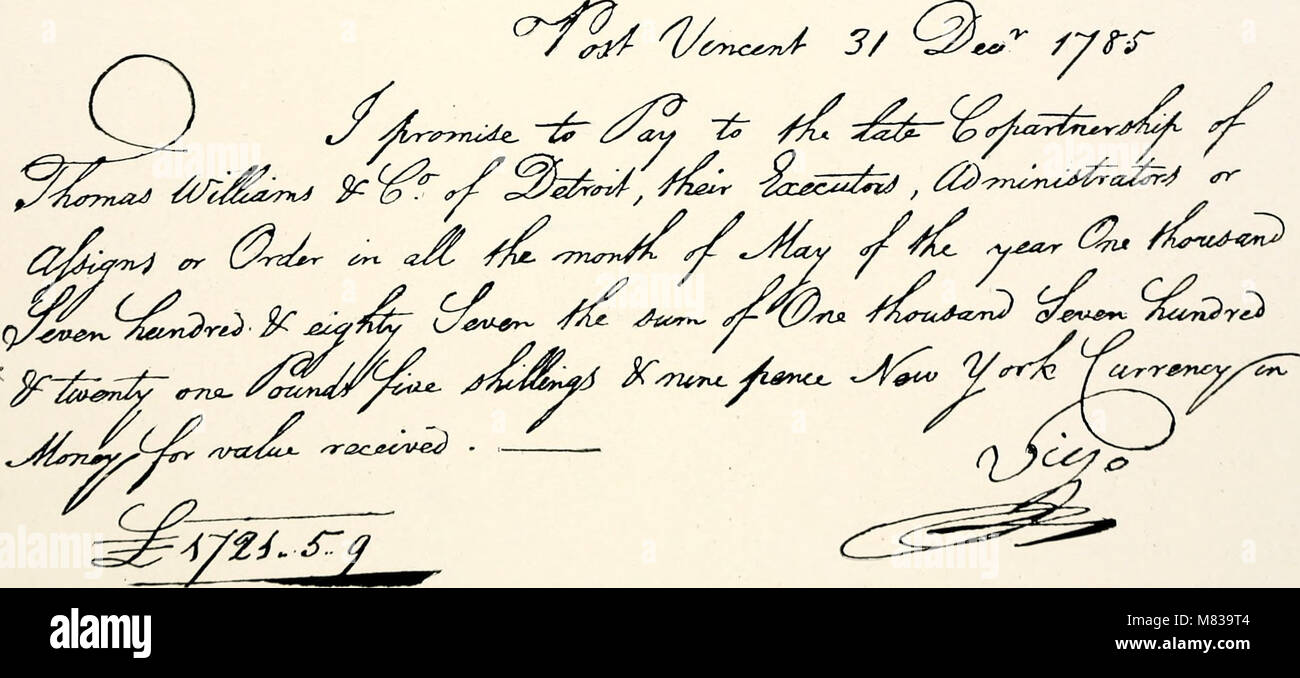 Post Vincent 31 Decr 1785
I promise to Pay to the late Copartnership of
Thomas Williams & Co. of Detroit, their Executors, Administrators or
Assigns or Order in all the month of May of the year One thousand
Seven hundred & eighty Seven the sum of One thousand Seven hundred
& twenty one Pounds five shillings & nine pence New York Currency in
Money, for value received. —
Vigo
£1721..5..9
alamy
Image ID: M839T4
www.alamy.com